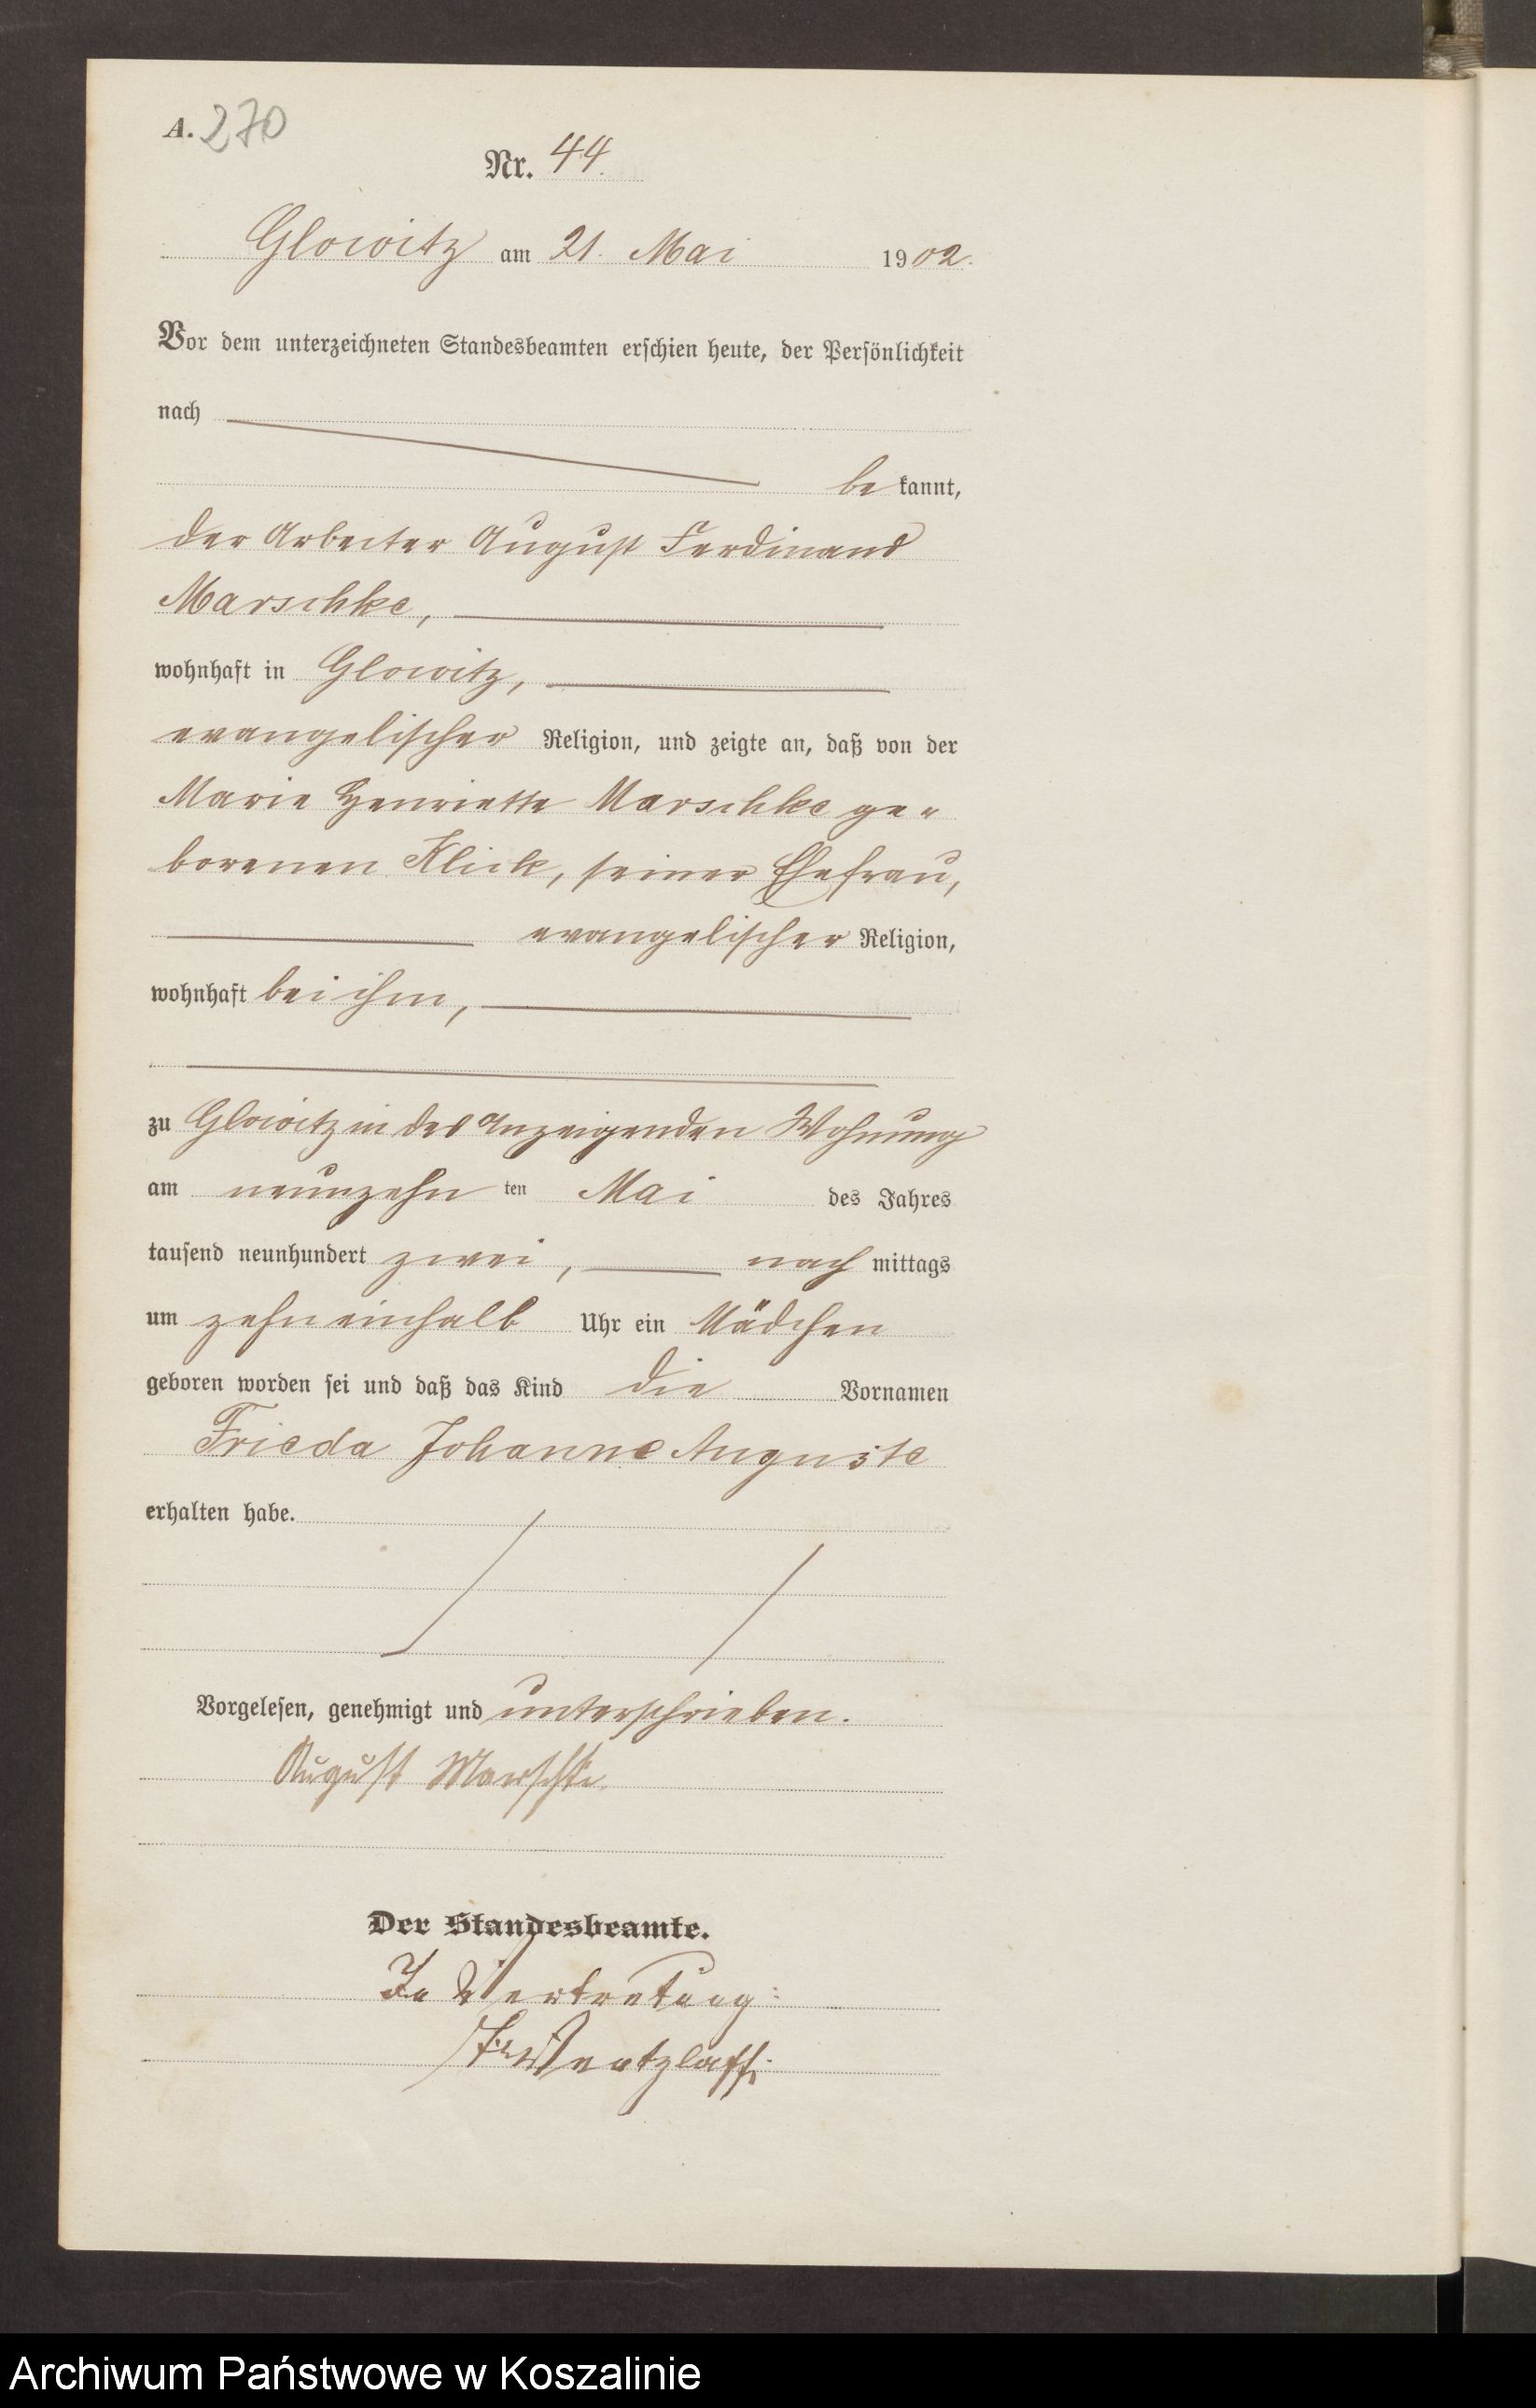 A. 270
Nr. 44.
Glowitz am 21. Mai 1902.
Vor dem unterzeichneten Standesbeamten erschien heute, der Persönlichkeit
nach
be kannt,
der Arbeiter August Ferdinand
Marschke,
wohnhaft in Glowitz,
evangelischer Religion, und zeigte an, daß von der
Marie Henriette Marschke ge-
borenen Klick, seiner Ehefrau,
evangelischer Religion,
wohnhaft bei ihm,
zu Glowitz in des Anzeigenden Wohnung
am neunzehn ten Mai des Jahres
tausend neunhundert zwei, nach mittags
um zehn einhalb Uhr ein Mädchen
geboren worden sei und daß das Kind die Vornamen
Frieda Johanne Auguste
erhalten habe.
Vorgelesen, genehmigt und unterschrieben.
August Marschke.
Der Standesbeamte.
In Vertretung:
Wentzlaff.
Archiwum Państwowe w Koszalinie